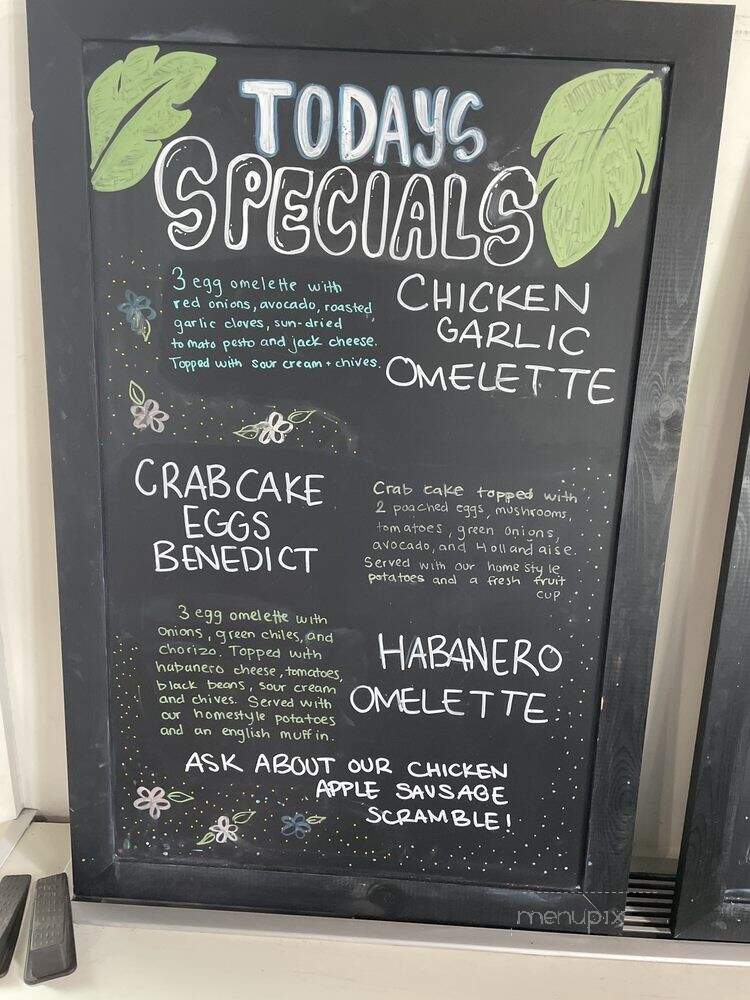 TODAYS
SPECIALS
3 egg omelette with
red onions, avocado, roasted
garlic cloves, sun-dried
tomato pesto and jack cheese.
Topped with sour cream + chives.
CHICKEN
GARLIC
OMELETTE
CRABCAKE
EGGS
BENEDICT
Crab cake topped with
2 poached eggs, mushrooms,
tomatoes, green onions,
avocado, and Hollandaise.
Served with our homestyle
potatoes and a fresh fruit
cup
3 egg omelette with
onions, green chiles, and
chorizo. Topped with
habanero cheese, tomatoes,
black beans, sour cream
and chives. Served with
our homestyle potatoes
and an english muffin.
HABANERO
OMELETTE
ASK ABOUT OUR CHICKEN
APPLE SAUSAGE
SCRAMBLE!
menupix